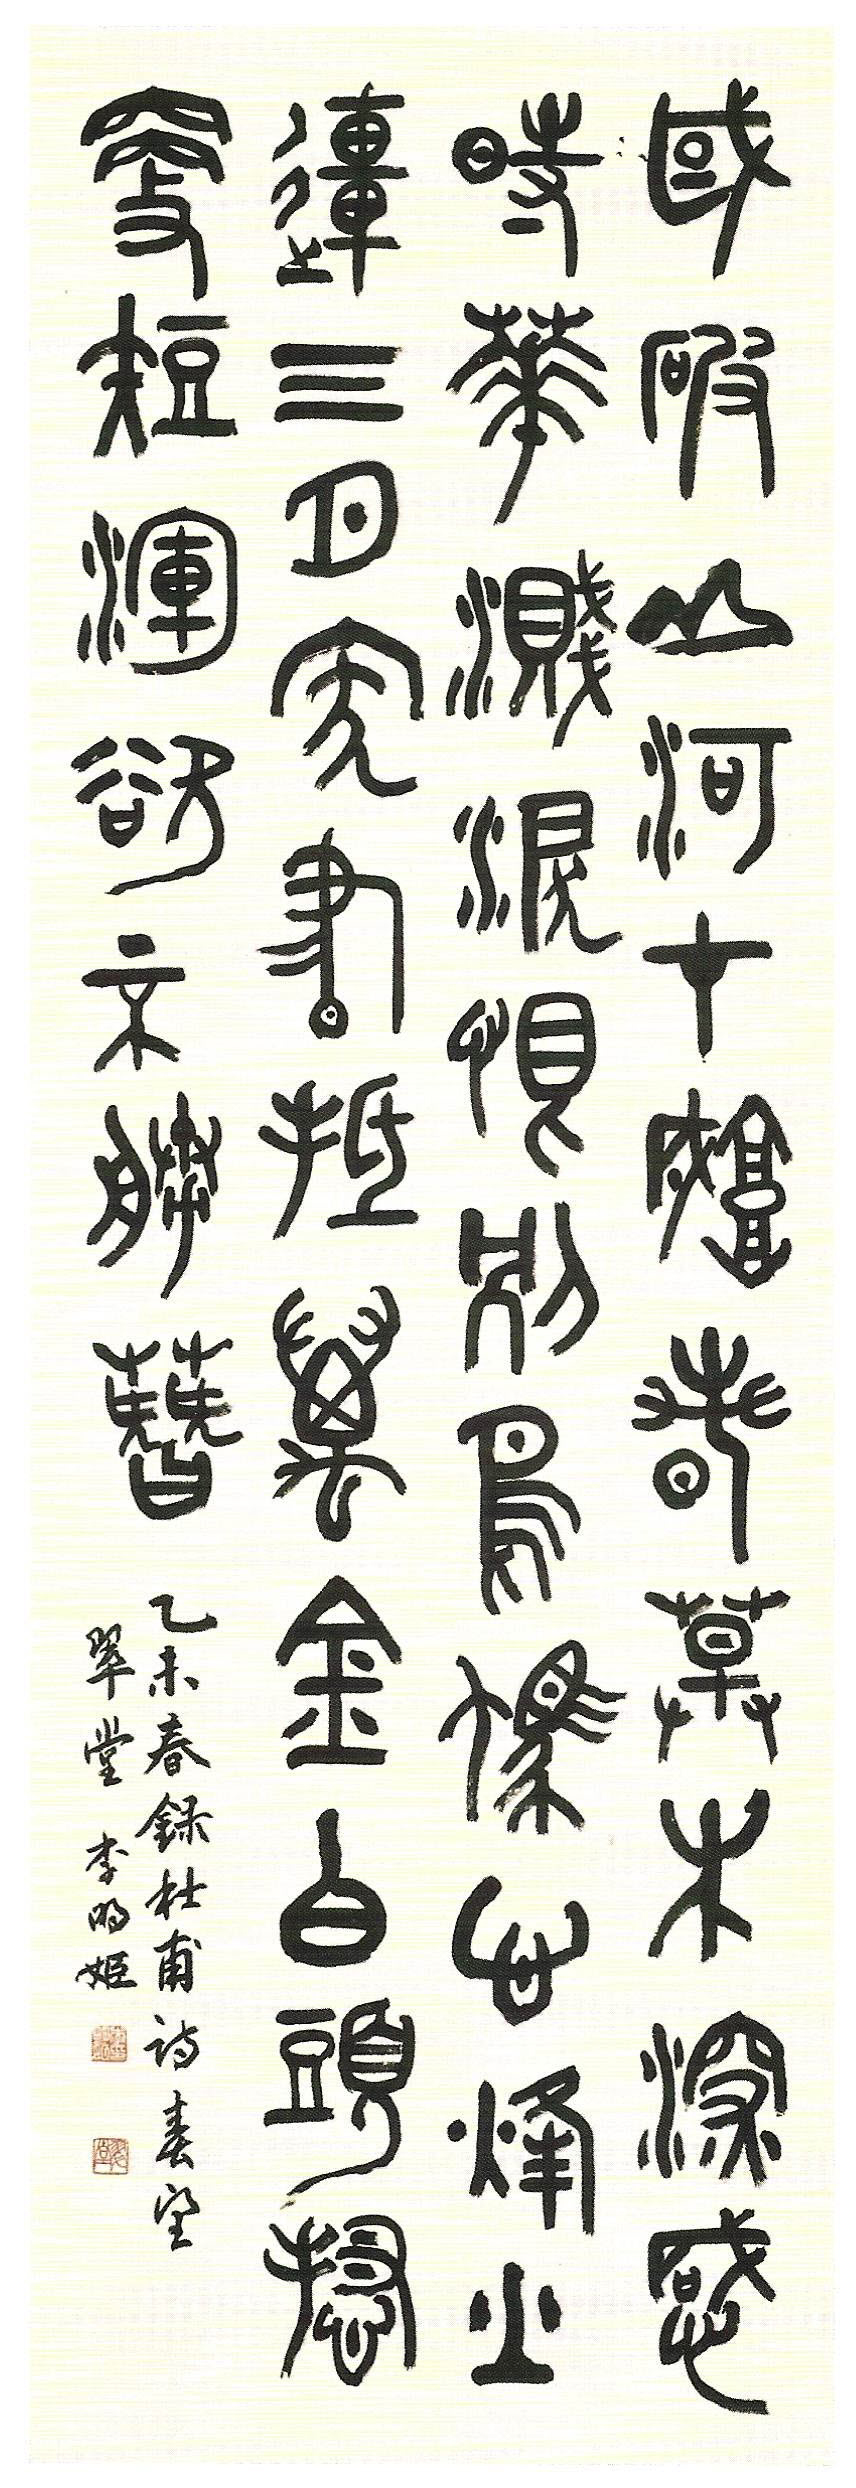 國破山河在城春草木深感
時華濺淚恨別鳥驚心烽火
連三月家書抵萬金白頭搔
更短渾欲不勝簪
乙未春錄杜甫詩春望
翠堂 李明姬